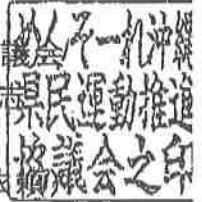 めんそーれ沖縄
県民運動推進
協議会之印